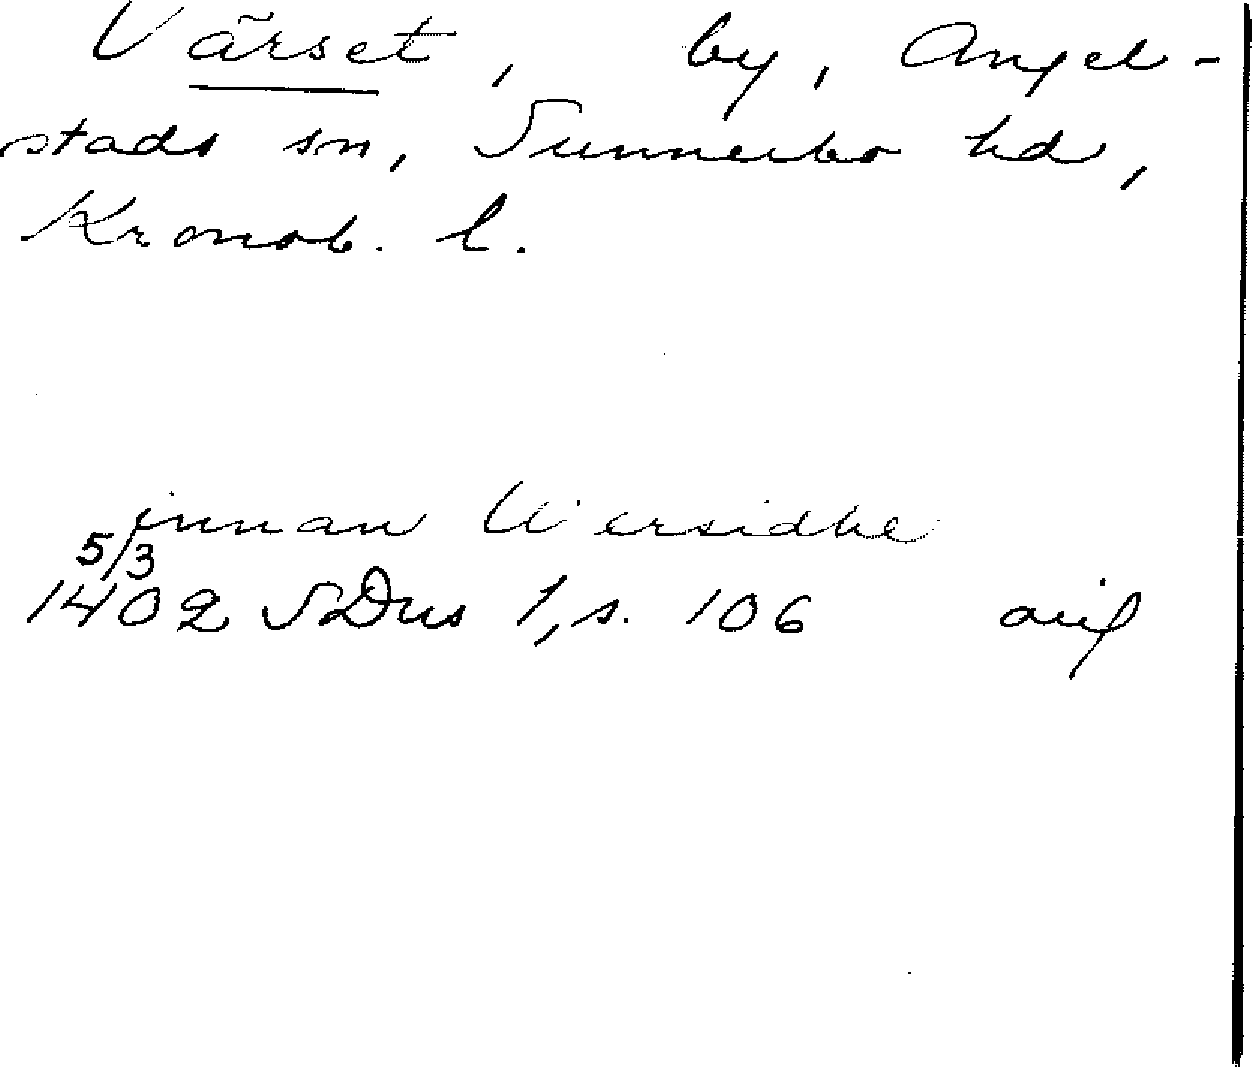 Värset, by, Angel-
stads sn, Sunnerbo hd,
Kronob. l.
innan Wersidhe
5/3
1402 SDns 1, s. 106 avif